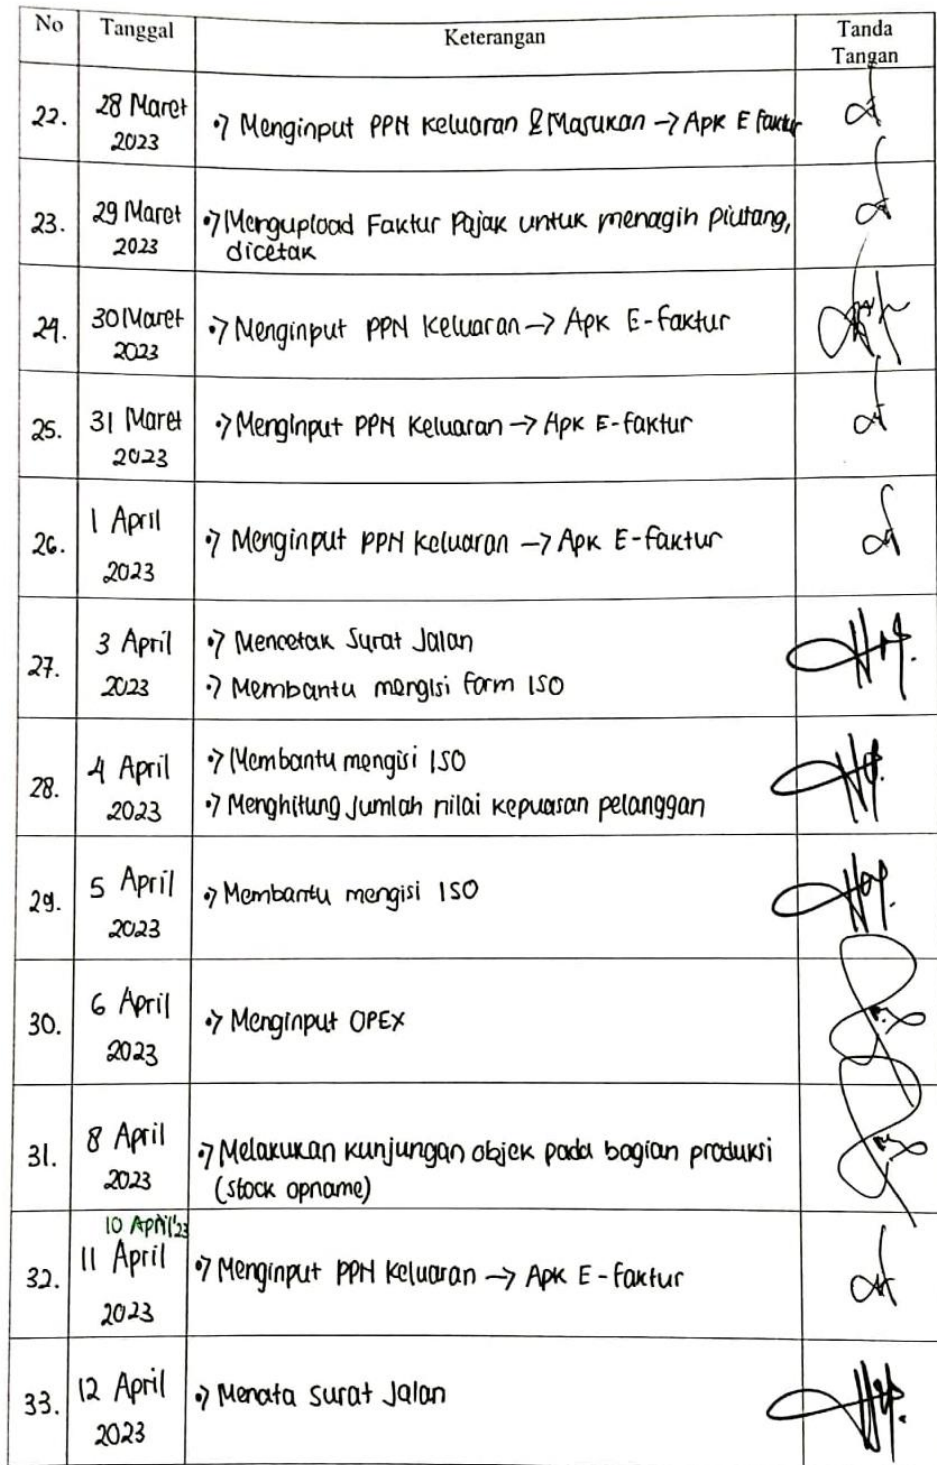 No Tanggal Keterangan Tanda
Tangan
22. 28 Maret
2023
•> Menginput PPN Keluaran & Masukan -> Apk E faktur
23. 29 Maret
2023
•> Mengupload Faktur Pajak untuk menagih piutang,
dicetak
24. 30 Maret
2023
•> Menginput PPN Keluaran -> Apk E-faktur
25. 31 Maret
2023
•> Menginput PPN Keluaran -> Apk E-faktur
26. 1 April
2023
•> Menginput PPN Keluaran -> Apk E-faktur
27. 3 April
2023
•> Mencetak Surat Jalan
•> Membantu mengisi form ISO
28. 4 April
2023
•> Membantu mengisi ISO
•> Menghitung jumlah nilai kepuasan pelanggan
29. 5 April
2023
•> Membantu mengisi ISO
30. 6 April
2023
•> Menginput OPEX
31. 8 April
2023
•> Melakukan kunjungan objek pada bagian produksi
(stock opname)
10 April'23
32. 11 April
2023
•> Menginput PPN Keluaran -> Apk E-faktur
33. 12 April
2023
•> Menata surat Jalan